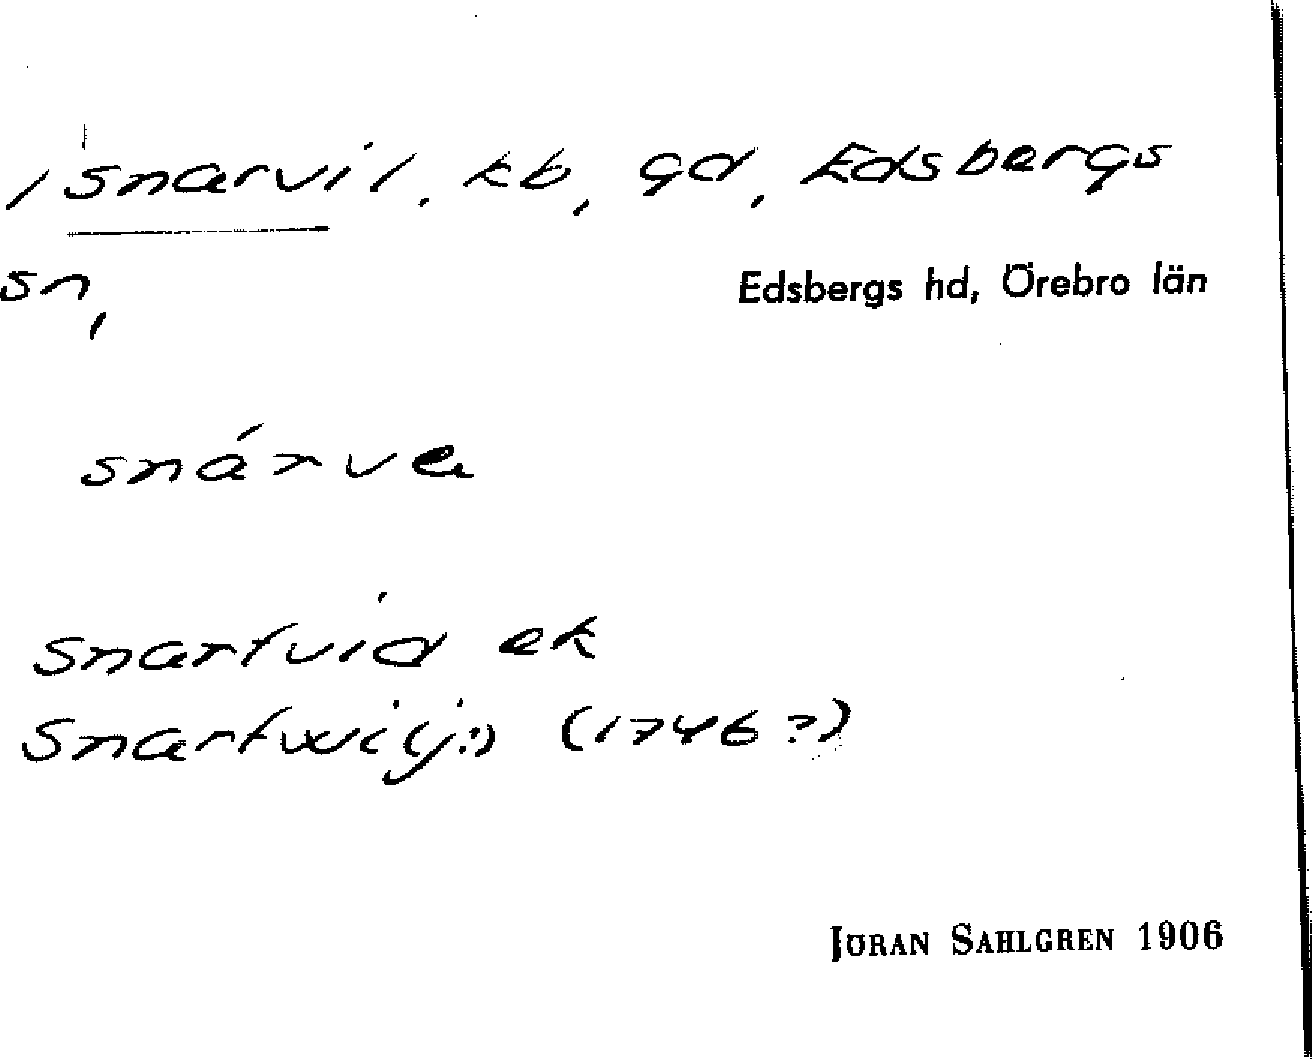 / Snarvil, kb, gd, Edsbergs
sn,
Edsbergs hd, Örebro län
snárve
Snartvid ek
Snartwilj:n (1746?)
JÖRAN SAHLGREN 1906